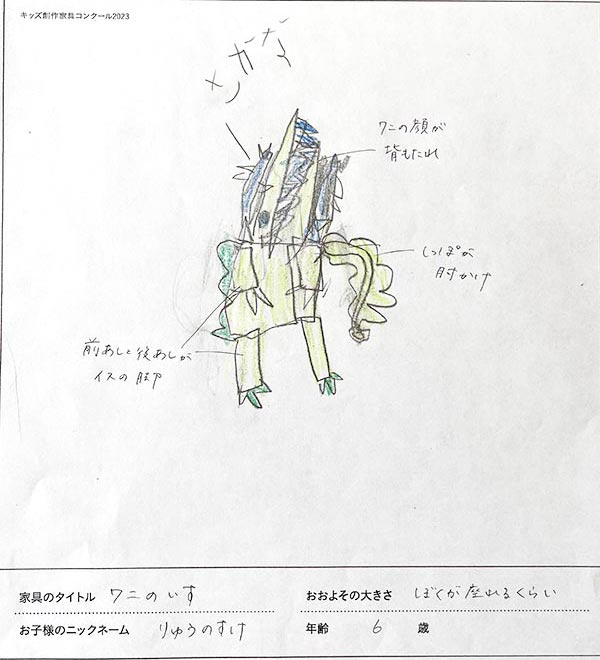 キッズ創作家具コンクール2023
メガネ
ワニの顔が
背もたれ
しっぽが
肘かけ
前あしと後あしが
イスの脚
家具のタイトル ワニのいす
おおよその大きさ ぼくが座れるくらい
お子様のニックネーム りゅうのすけ
年齢 6 歳